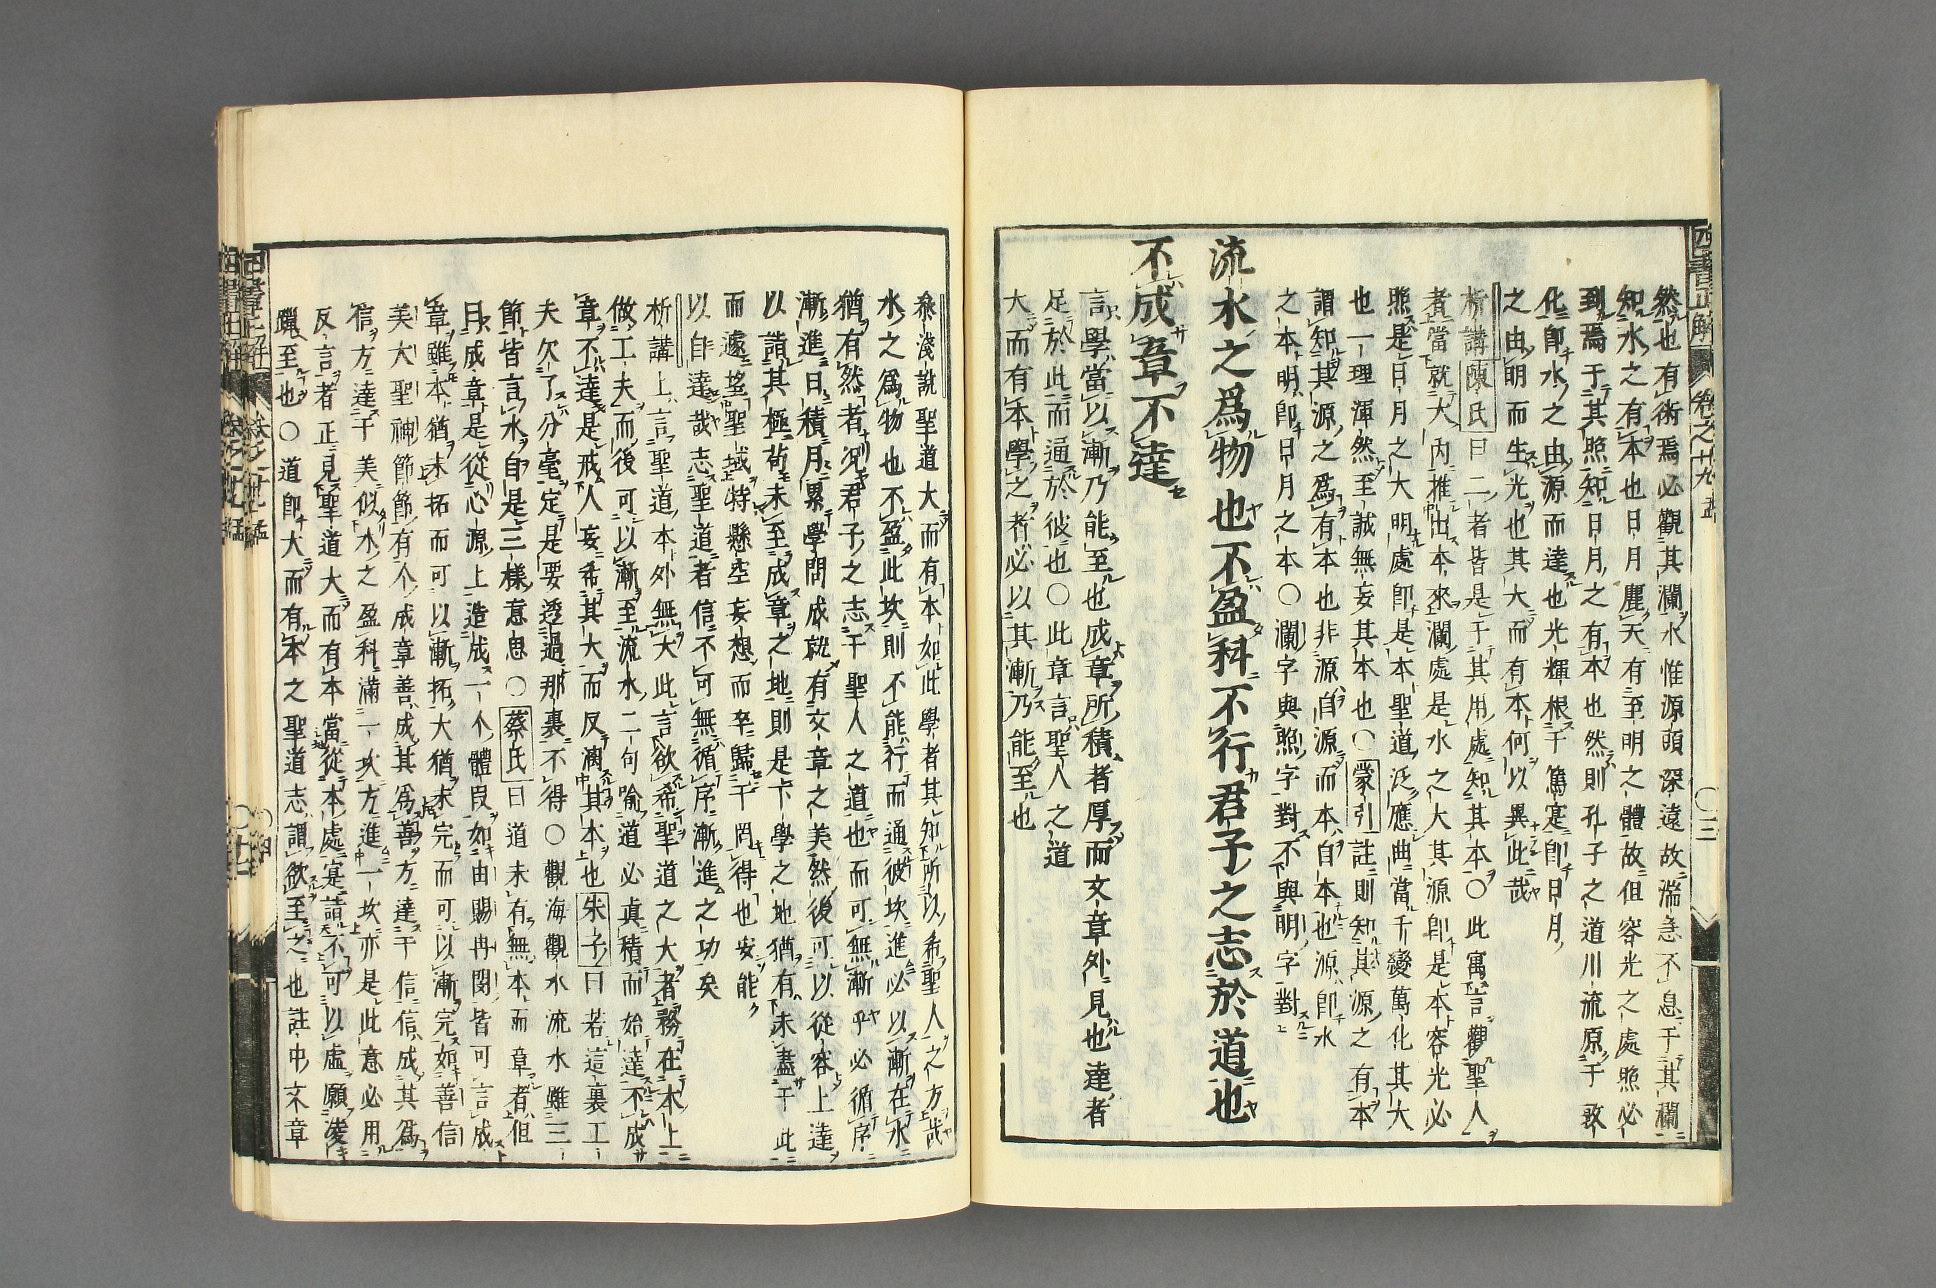 四書正解
卷之廿九
然也有術焉必觀其瀾水惟源頭深遠故湍急不息于其瀾
知水之有本也日月麗天有至明之體故但容光之處照必
到焉于其照知日月之有本也然則孔子之道川流原于敦
化即水之由源而達也光輝根于篤寔即日月
之由明而生光也其大而有本何以異此哉
析講陳氏曰二者皆是于其用處知其本○此寓言觀聖人
者當就大內推出本來瀾處是水之大其源即是本容光必
照是日月之大明處即是本聖道泛應曲當千變萬化其大
也一理渾然至誠無妄其本也○蒙引註則知其源之有本
謂知其源之爲有本也非源自源而本自本也源即水
之本明即日月之本○瀾字與照字對不與明字對
流水之爲物也不盈科不行君子之志於道也
不成章不達
言學當以漸乃能至也成章所積者厚而文章外見也達者
足於此而通於彼也○此章言聖人之道
大而有本學之者必以其漸乃能至也
叅淺說聖道大而有本如此學者其知所以希聖人之方哉
水之爲物也不盈此坎則不能行而通彼坎進必以漸在水
猶有然者况君子之志于聖人之道也而可無漸乎必循序
漸進日積月累學問成就有文章之美然後可以從容上達
以詣其極苟未至成章之地則是下學之地猶有未盡于此
而遽望聖域特懸空妄想而卒歸于罔得也安能
以自達哉志聖道者信不可無循序漸進之功矣
析講上言聖道本外無大此言欲希聖道之大者務在本上
做工夫而後可以漸至流水二句喻道必眞積而始達不成
章不達是戒人妄希其大而反漓其本也朱子曰若這裏工
夫欠了分毫定是要透過那裏不得○觀海觀水流水雖三
節皆言水自是三樣意思○蔡氏曰道未有無本而章者但
曰成章是從心源上造成一个體段如由賜冉閔皆可言成
章雖本猶未拓而可以漸拓大猶未完而可以漸完如善信
美大聖神節節有个成章善成其爲善方達于信信成其爲
信方達于美似水之盈科滿一坎方進一坎亦是此意必用
反言者正見聖道大而有本當從本處寔詣不可以虛願凌
躐至也○道即大而有本之聖道志謂欲至之也註中文章